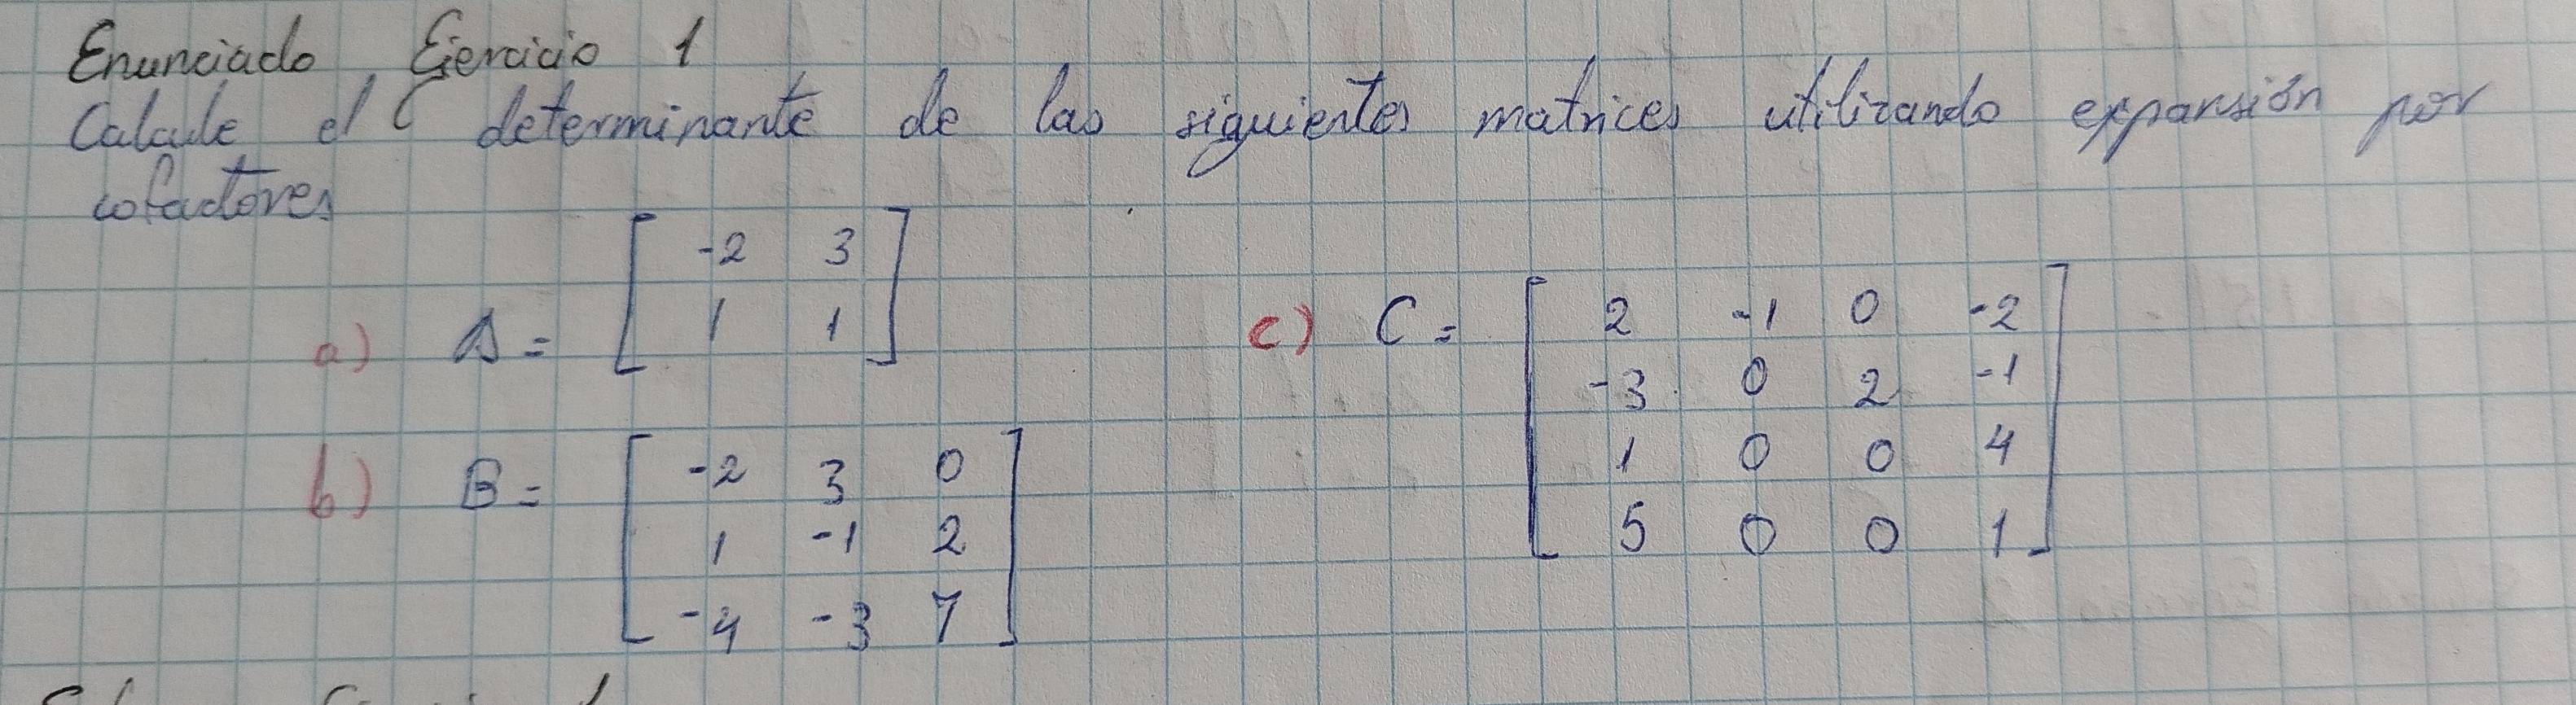 Enunciado Ejercicio 1
Calcule el determinante de las siguientes matrices utilizando expansión por
cofactores
a) A = [ -2 3
1 1 ]
b) B = [ -2 3 0
1 -1 2
-4 -3 7 ]
c) C = [ 2 -1 0 -2
-3 0 2 -1
1 0 0 4
5 0 0 1 ]